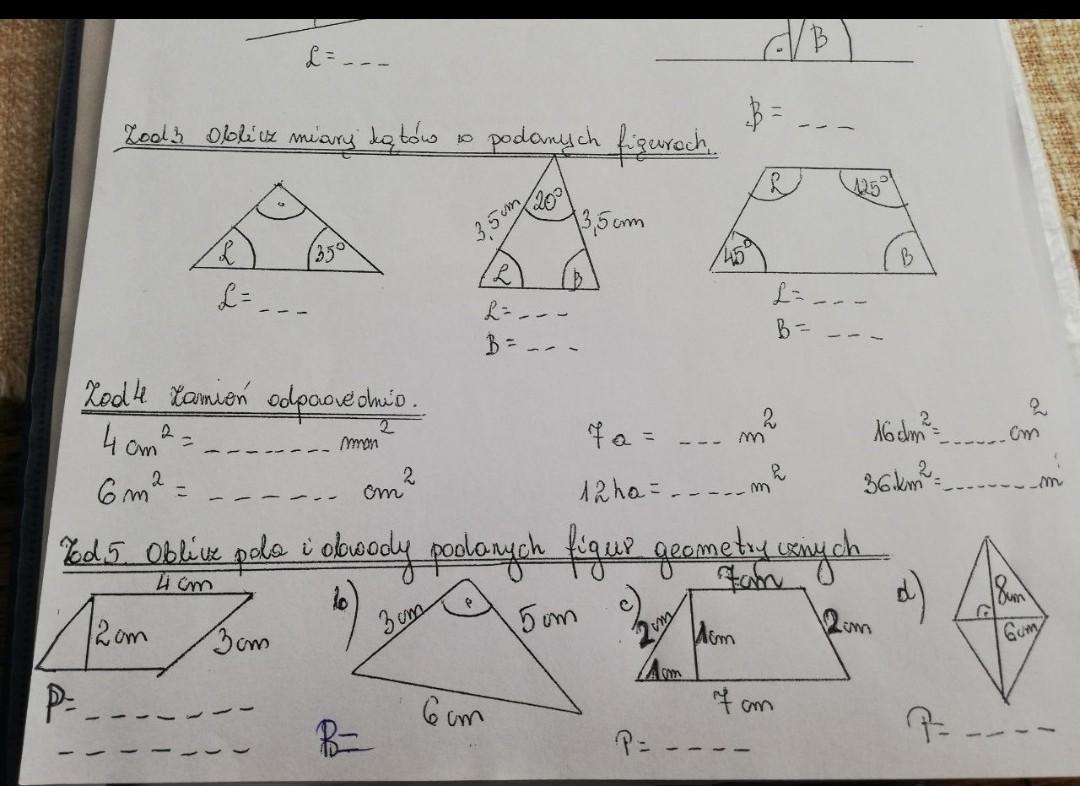 L = _ _ _
B
B = _ _ _
Zad3 Oblicz miary kątów w podanych figurach.
L 35°
L = _ _ _
3,5 cm 20° 3,5cm
L B
L = _ _ _
B = _ _ _
L 125°
45° B
L = _ _ _
B = _ _ _
Zad4 Zamień odpowednio.
4 cm² = _ _ _ _ _ _ _ _ mm²
7 a = _ _ _ m²
16dm² = _ _ _ _ _ cm²
6 m² = _ _ _ _ _ _ cm²
12ha = _ _ _ _ _ m²
36km² = _ _ _ _ _ _ _ m
Zad.5. Oblicz pola i obwody podanych figur geometrycznych
4 cm
2cm 3cm
P= _ _ _ _ _ _ _
b) 3cm 5cm
6 cm
P=
c) 7cm
2cm 1cm 2cm
1cm
7 cm
P= _ _ _ _
d) 8cm
6cm
P= _ _ _ _